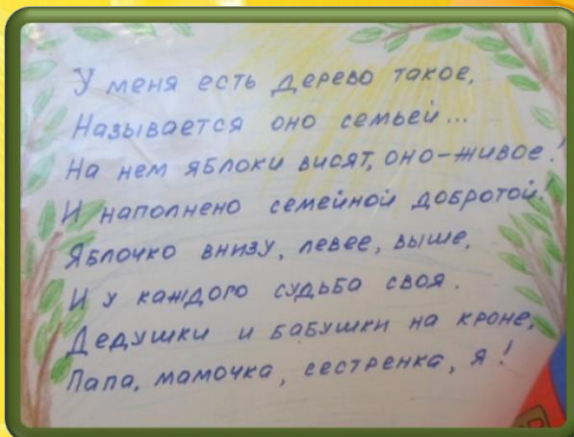 У меня есть дерево такое,
Называется оно семьей...
На нем яблоки висят, оно-живое!
И наполнено семейной добротой.
Яблочко внизу, левее, выше,
И у каждого судьба своя.
Дедушки и бабушки на кроне,
Папа, мамочка, сестренка, я!